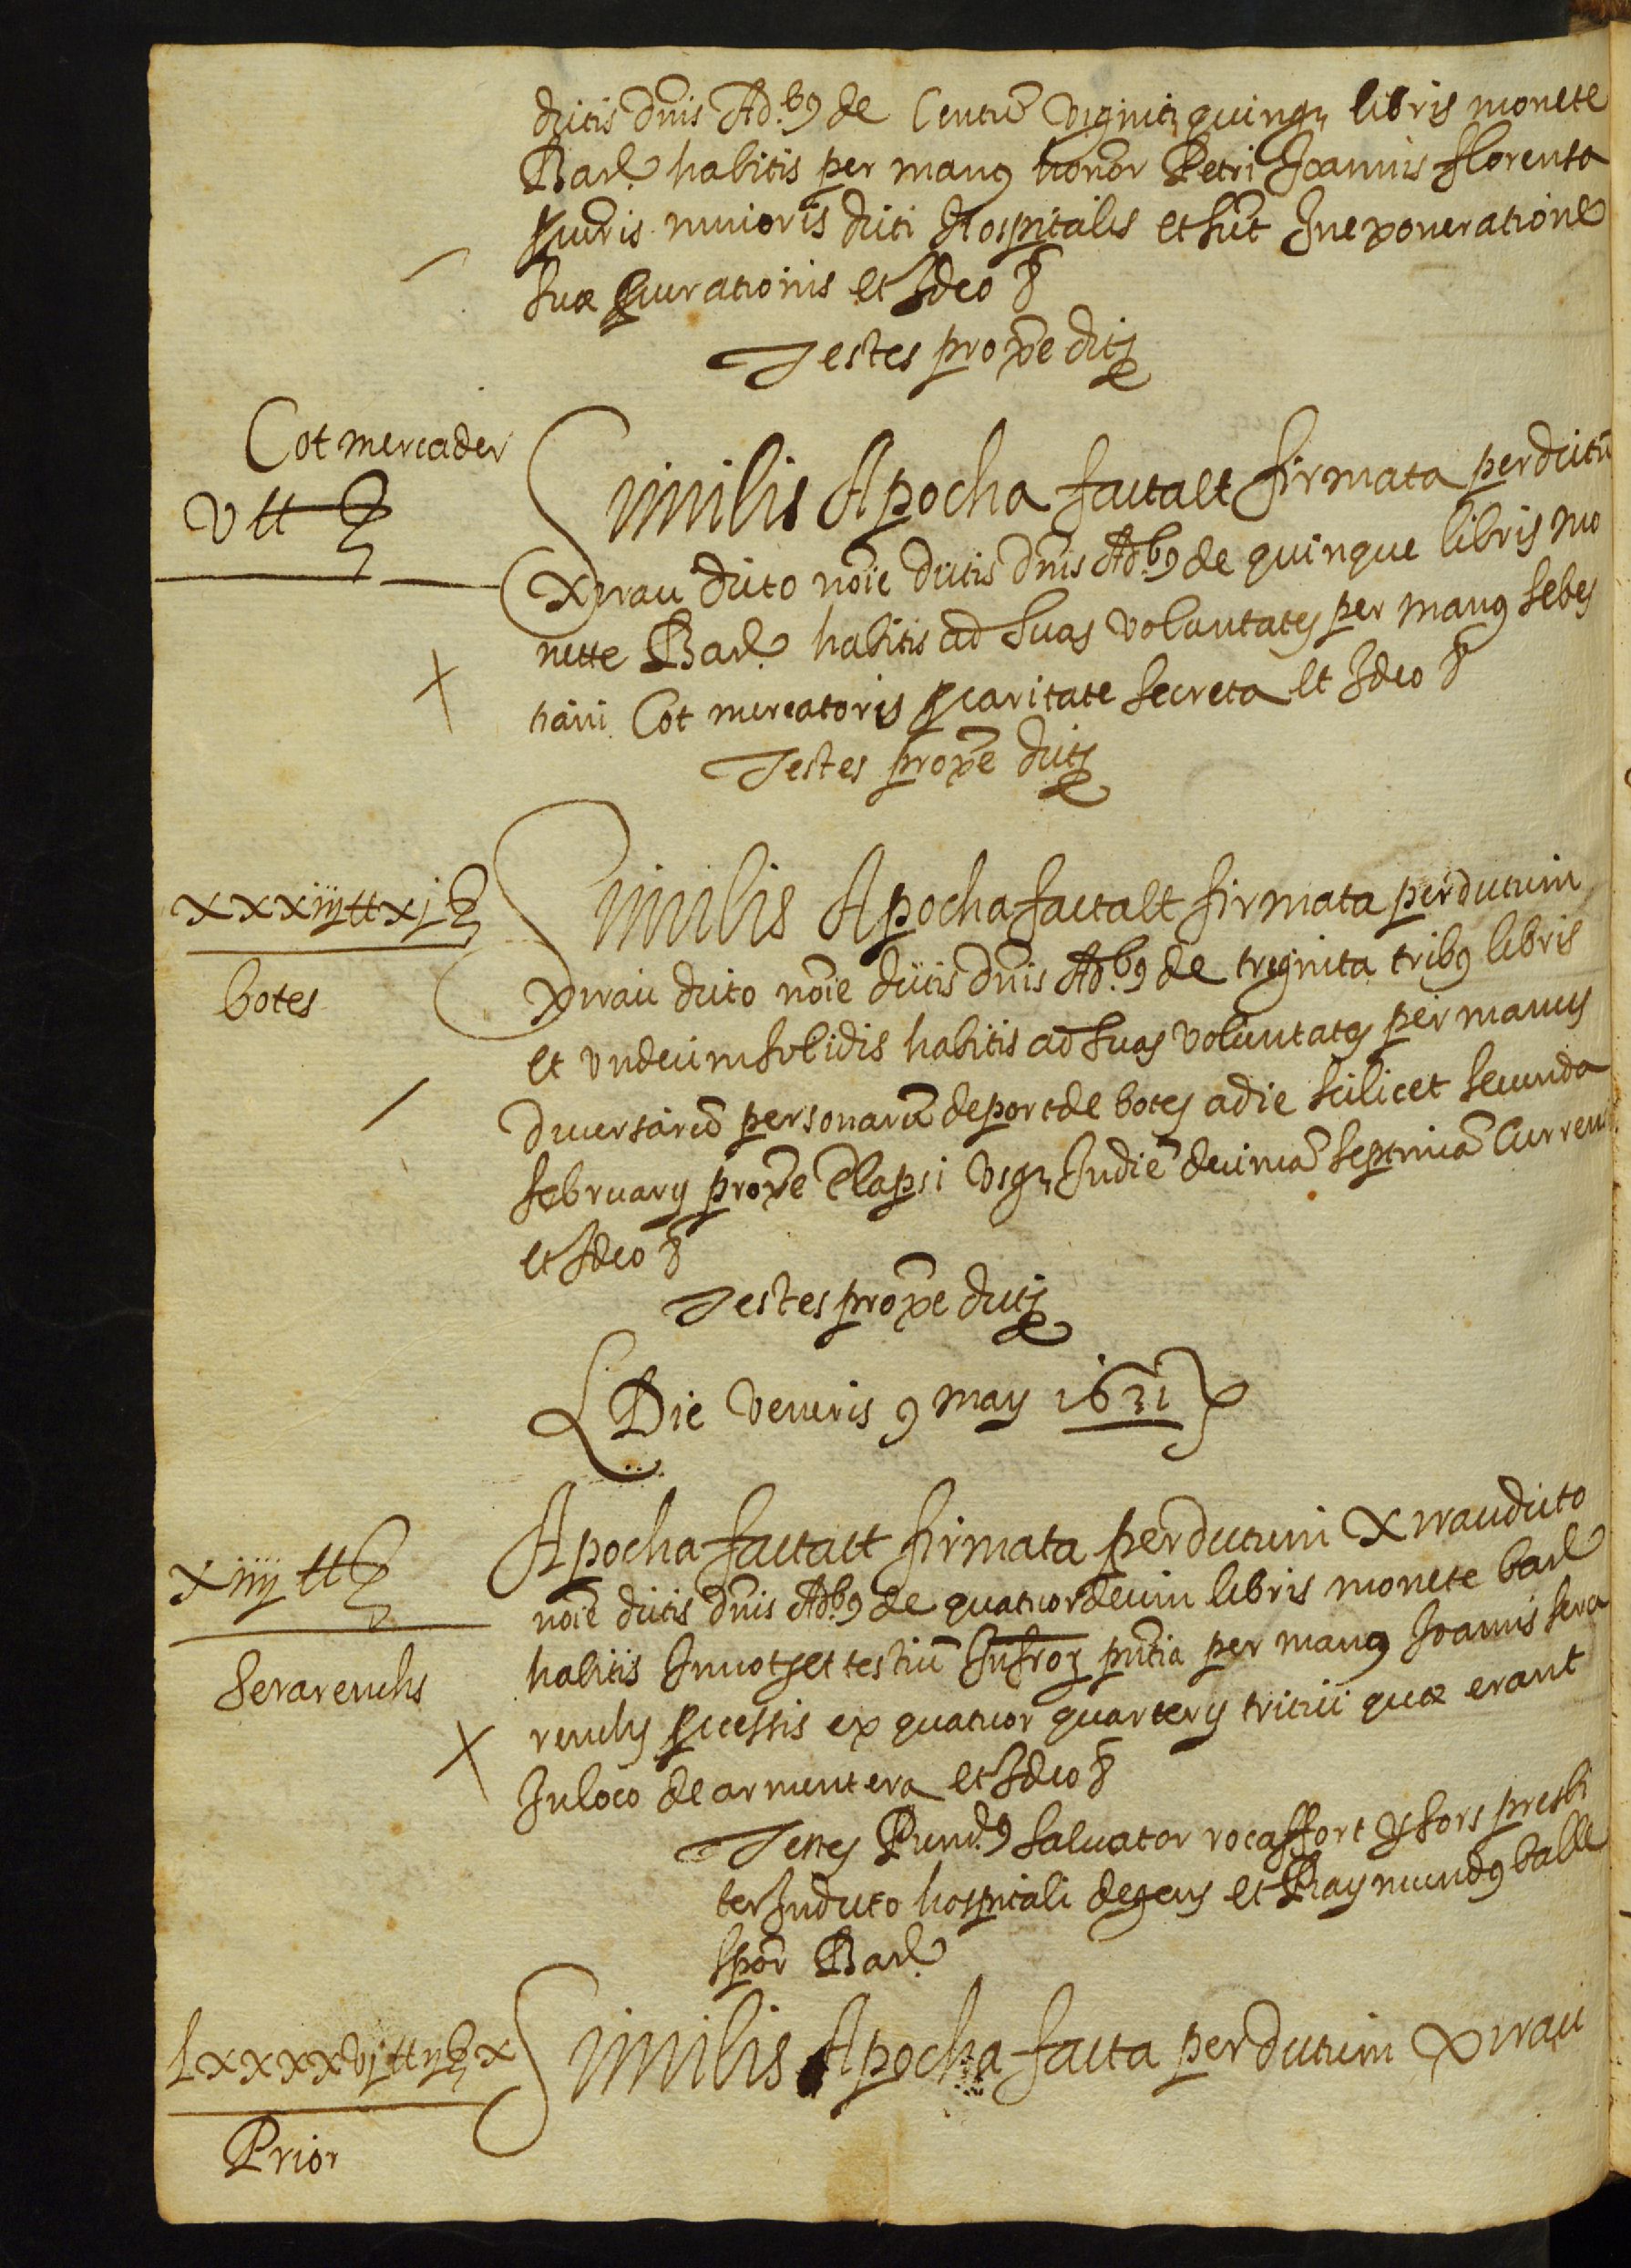 dictis dnis Adb9 de Centu viginti quinq libris monete
Barl habitis per man9 honor Petri Joannis florensa
scuris minioris dicti Hospitalis et sut In exoneratione
suæ curationis et Ideo &
Testes proxe dicti
Cot mercader
V ll ß
Similis Apocha facta et firmata per dictu
Xirrau dicto noie dictis dnis Adb9 de quinque libris mo
nette Barl habitis ad suas voluntates per man9 sebas
tiani Cot mercatoris p caritate secreta et Ideo &
Testes proxe dicti
xxxiij ll xj ß
botes
Similis Apocha facta et firmata per dictum
Xirrau dicto noie dictis dnis Adb9 de triginta trib9 libris
et undecim solidis habitis ad suas voluntates per manus
diversaru personaru de port de botes a die scilicet secunda
februarij proxe elapsi usq In die decima septima Currentis
et Ideo &
Testes proxe dicti
Die veneris 9 maij 1631
xiiij ll ß
Serarenchs
Apocha facta et firmata per dictum Xirrau dicto
noie dictis dnis Adb9 de quatuordecim libris monete barl
habitis In not et testiu Infror pntia per man9 Joannis sera
renchs pcessis ex quatuor quarterijs tritici quæ erant
In loco de armentera et Ideo &
Testes Rund9 salvator rocaffort y sors presbi
ter In dicto hospitali degens et Raymund9 balle
spor Barl
Lxxxxvj ll ij ß x
Similis Apocha facta per dictum Xirrau
Prior